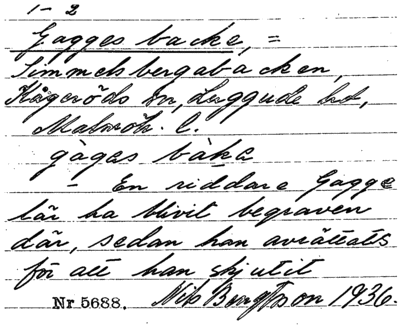 1-2
Gagges backe, =
Simmelsbergabacken,
Kågeröds sn, Luggude hd,
Malmöh. l.
gàgas bàkə
- En riddare Gagge
lär ha blivit begraven
där, sedan han avrättats
för att han skjutit
Nr 5688. Nils Bengtsson 1936.